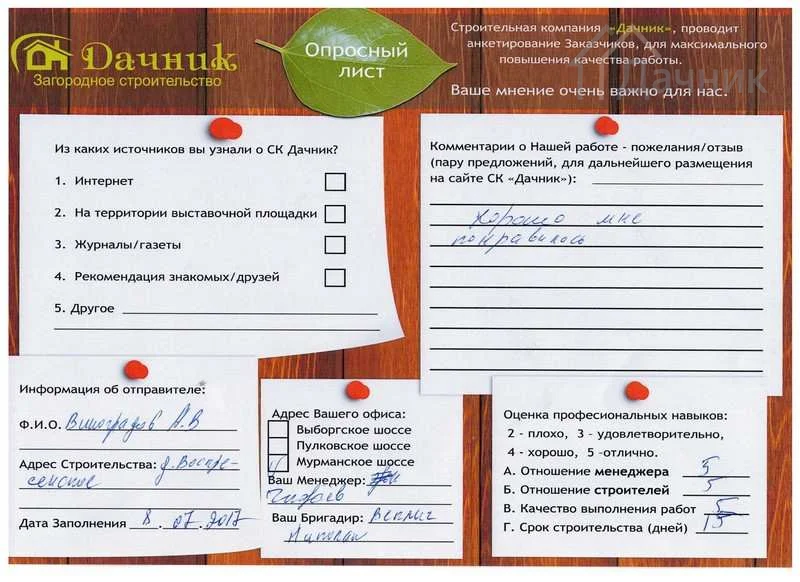 Дачник
Загородное строительство
Опросный
лист
Строительная компания «Дачник», проводит
анкетирование Заказчиков, для максимального
повышения качества работы.
Ваше мнение очень важно для нас.
Дачник
Из каких источников вы узнали о СК Дачник?
1. Интернет
2. На территории выставочной площадки
3. Журналы/газеты
4. Рекомендация знакомых/друзей
5. Другое
Комментарии о Нашей работе - пожелания/отзыв
(пару предложений, для дальнейшего размещения
на сайте СК «Дачник»):
хорошо мне
понравилось
Информация об отправителе:
Ф.И.О. Виноградов А.В
Адрес Строительства: д. Воскре-
сенское
Дата Заполнения 8.07.2017
Адрес Вашего офиса:
Выборгское шоссе
Пулковское шоссе
Мурманское шоссе
Ваш Менеджер:
Ваш Бригадир:
Оценка професиональных навыков:
2 - плохо, 3 - удовлетворительно,
4 - хорошо, 5 -отлично.
А. Отношение менеджера 5
Б. Отношение строителей 5
В. Качество выполнения работ 5
Г. Срок строительства (дней) 15